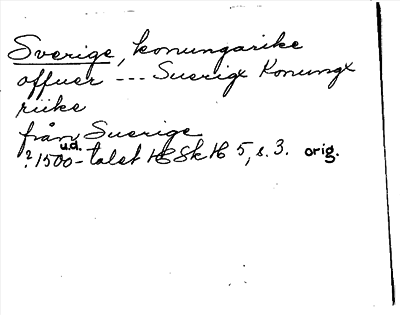 Sverige, konungarike
offuer --- Suerigx Konungx
riike
från Suerige
u.d.
? 1500-talet HSkH 5, s. 3. orig.